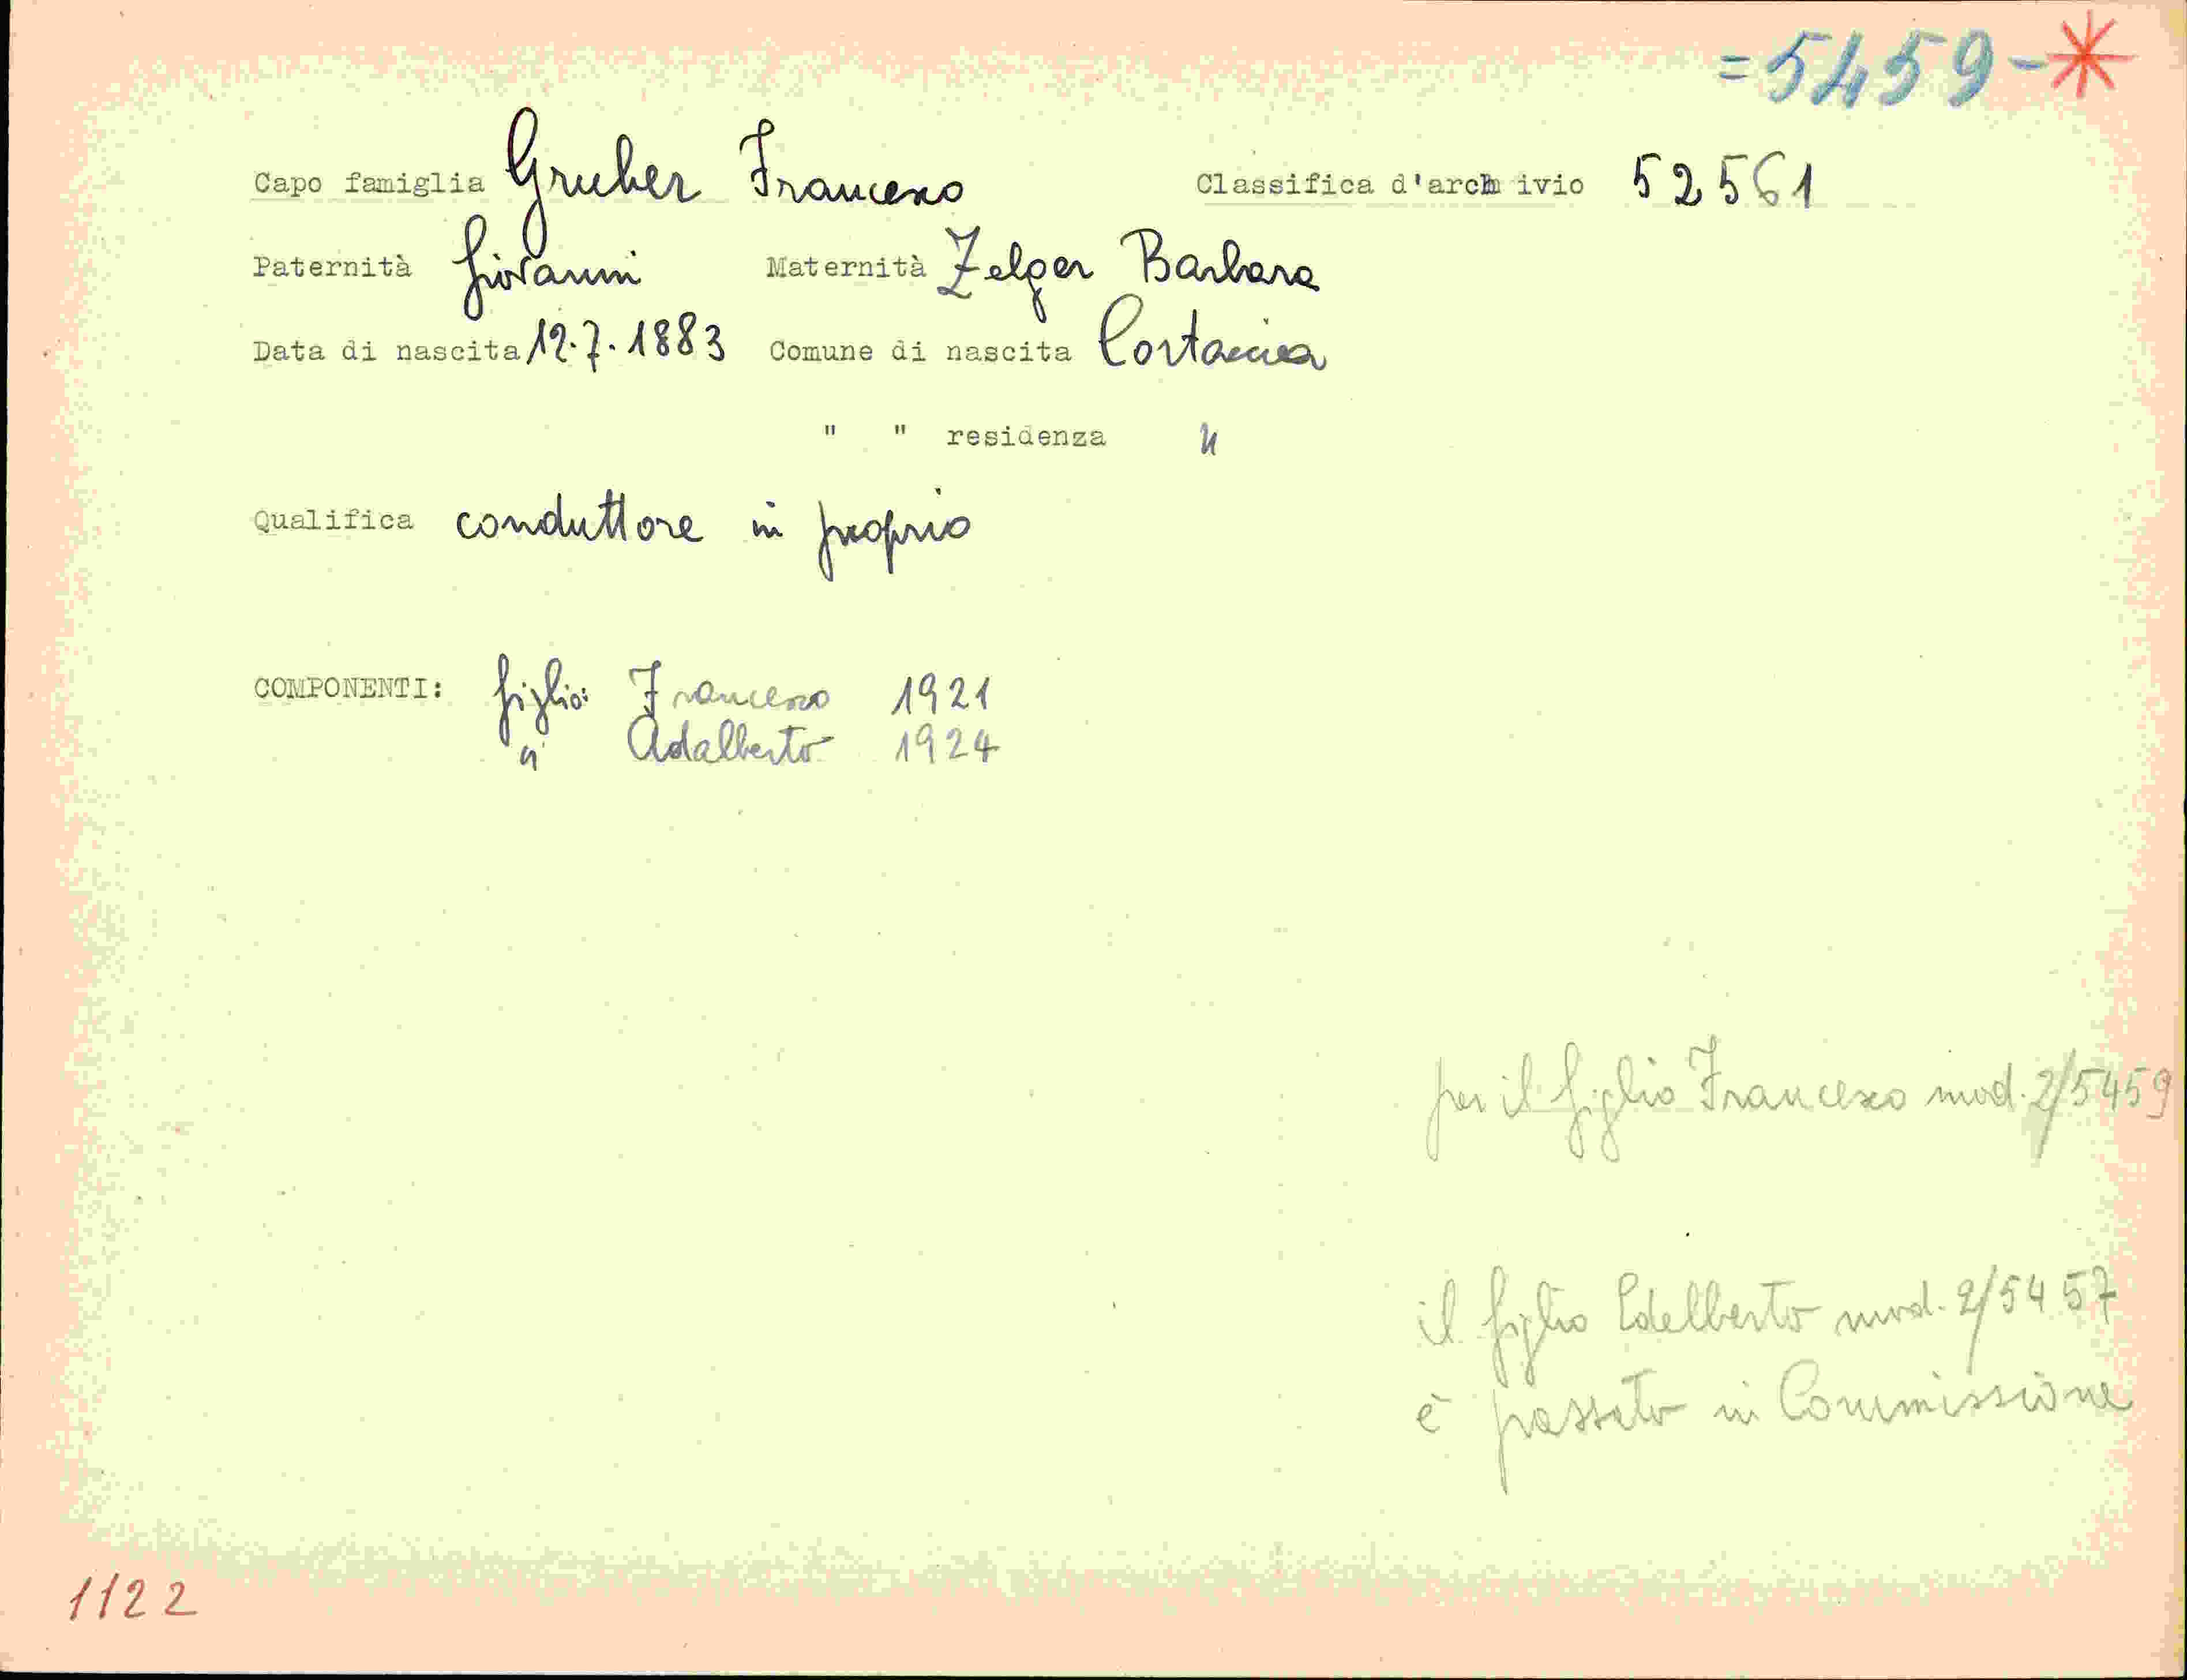 =5459-*
Capo famiglia Gruber Francesco Classifica d'arch ivio 52561
Paternità Giovanni Maternità Zelger Barbara
Data di nascita 12.7.1883 Comune di nascita Cortaccia
" " residenza "
Qualifica conduttore in proprio
COMPONENTI: figlio: Francesco 1921
" Adalberto 1924
per il figlio Francesco mod. 2/5459
il figlio Edelberto mod. 2/5457
è passato in Commissione
1122